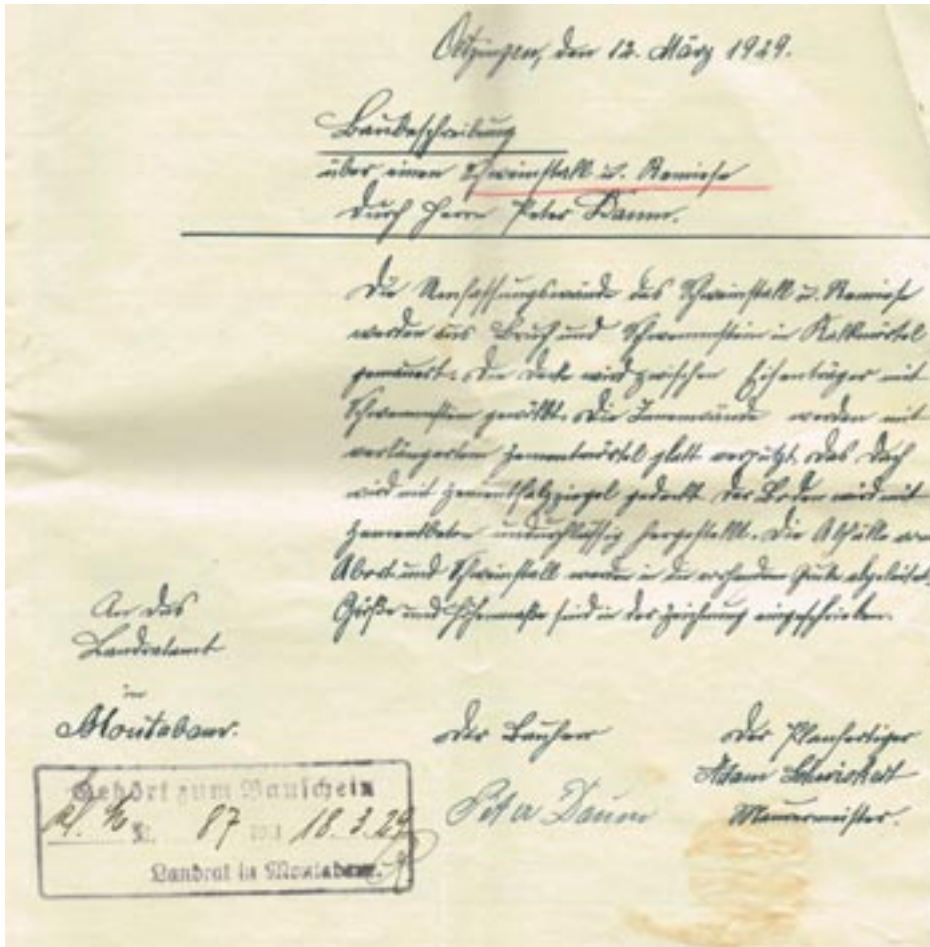 Ötzingen, den 12. März 1929.
Baubeschreibung
über einen Schweinstall u. Remiese
durch Herrn Peter Daum.
Die Umfassungswände des Schweinstall u. Remiese
werden aus Bruch und Schwemmstein in Kalkmörtel
gemauert. Die Decke wird zwischen Eisenträger mit
Schwemmstein gewölbt. Die Innenwände werden mit
verlängertem Zementmörtel glatt verputzt. Das Dach
wird mit Zementfalzziegel gedeckt. Der Boden wird mit
Zementbeton undurchlässig hergestellt. Die Abfälle
Abort und Schweinstall werden in die Grube abgeleitet.
Größe und Höhenmaße sind in der Zeichnung eingeschrieben.
An das
Landratamt
in
Montabaur.
Der Bauherr
Peter Daum
Der Planfertiger
Adam
Maurermeister.
Gehört zum Bauschein
Nr. 87 von 18.3.29
Landrat in Montabaur.